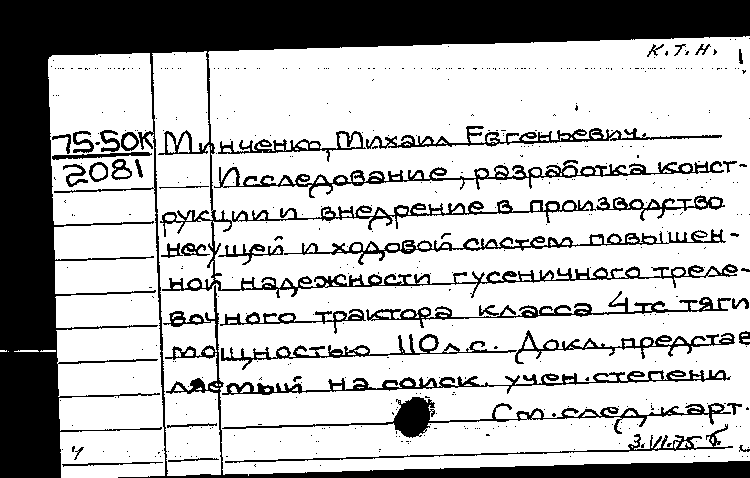 К.Т.Н.
75-50К
2081
Минченко, Михаил Евгеньевич.
Исследование, разработка конст-
рукции и внедрение в производство
несущей и ходовой систем повышен-
ной надежности гусеничного треле-
вочного трактора класса 4тс тяги
мощностью 110 л.с. Докл., представ
ляемый на соиск. учен. степени
См. след. карт.
3.VI.75
ч